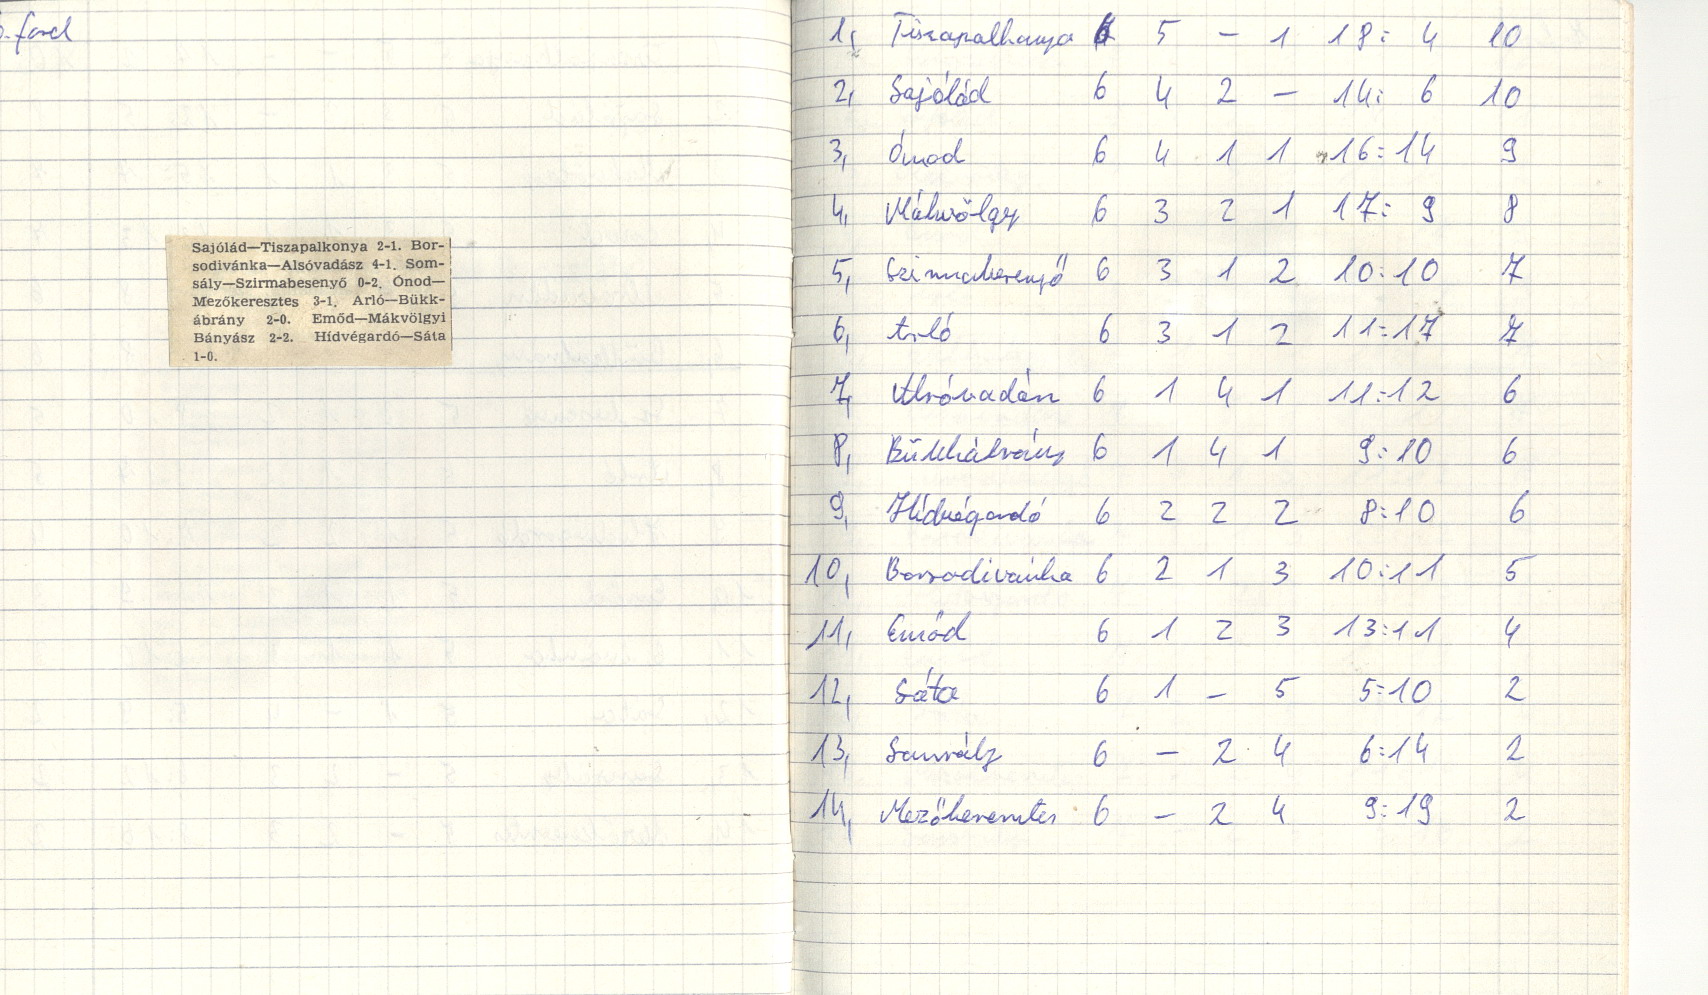 6. ford
Sajólád—Tiszapalkonya 2-1. Bor-
sodivánka—Alsóvadász 4-1. Som-
sály—Szirmabesenyő 0-2. Ónod—
Mezőkeresztes 3-1. Arló—Bükk-
ábrány 2-0. Emőd—Mákvölgyi
Bányász 2-2. Hídvégardó—Sáta
1-0.
1, Tiszapalkonya 6 5 - 1 18: 4 10
2, Sajólád 6 4 2 - 14: 6 10
3, Ónod 6 4 1 1 16:14 9
4, Mákvölgy 6 3 2 1 17: 9 8
5, Szirmabesenyő 6 3 1 2 10:10 7
6, Arló 6 3 1 2 11:17 7
7, Alsóvadász 6 1 4 1 11:12 6
8, Bükkábrány 6 1 4 1 9:10 6
9, Hídvégardó 6 2 2 2 8:10 6
10, Borsodivánka 6 2 1 3 10:11 5
11, Emőd 6 1 2 3 13:11 4
12, Sáta 6 1 - 5 5:10 2
13, Somsály 6 - 2 4 6:14 2
14, Mezőkeresztes 6 - 2 4 9:19 2